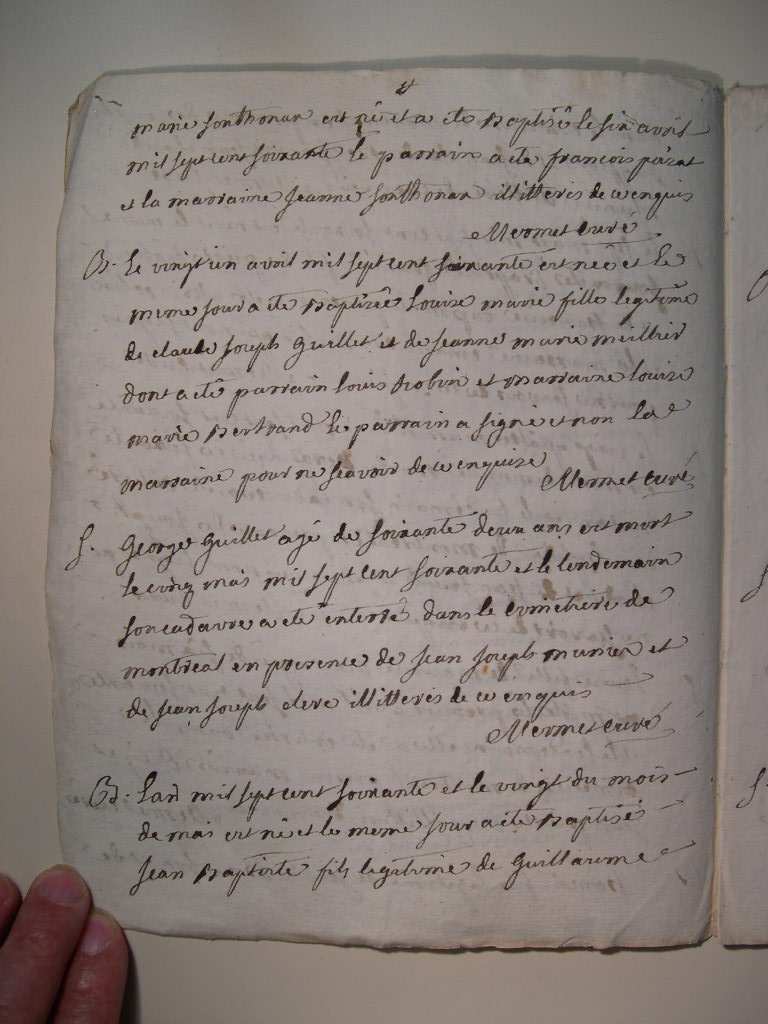 4
marie sonthonax est né et a été baptisé le six avril
mil sept cent soixante le parrain a été francois
et la marraine jeanne sonthonax illitterés de ce enquis
Mermet curé
B. Le vingt un avril mil sept cent soixante est née et le
meme jour a été baptisée Louise marie fille legitime
de claude joseph guillet et de jeanne marie meillier
dont a été parrain louis Robin et marraine louise
marie bertrand le parrain a signé et non la
marraine pour ne scavoir de ce enquise
Mermet curé
S. George guillet agé de soixante deux ans est mort
le cinq mais mil sept cent soixante et le lendemain
son cadavre a été enterré dans le cimetiere de
montreal en presence de jean joseph munier et
de jean joseph clerc illitterés de ce enquis
Mermet curé
B. L'an mil sept cent soixante et le vingt du mois
de mais est né et le meme jour a été baptisé
jean baptiste fils legitime de guillaume